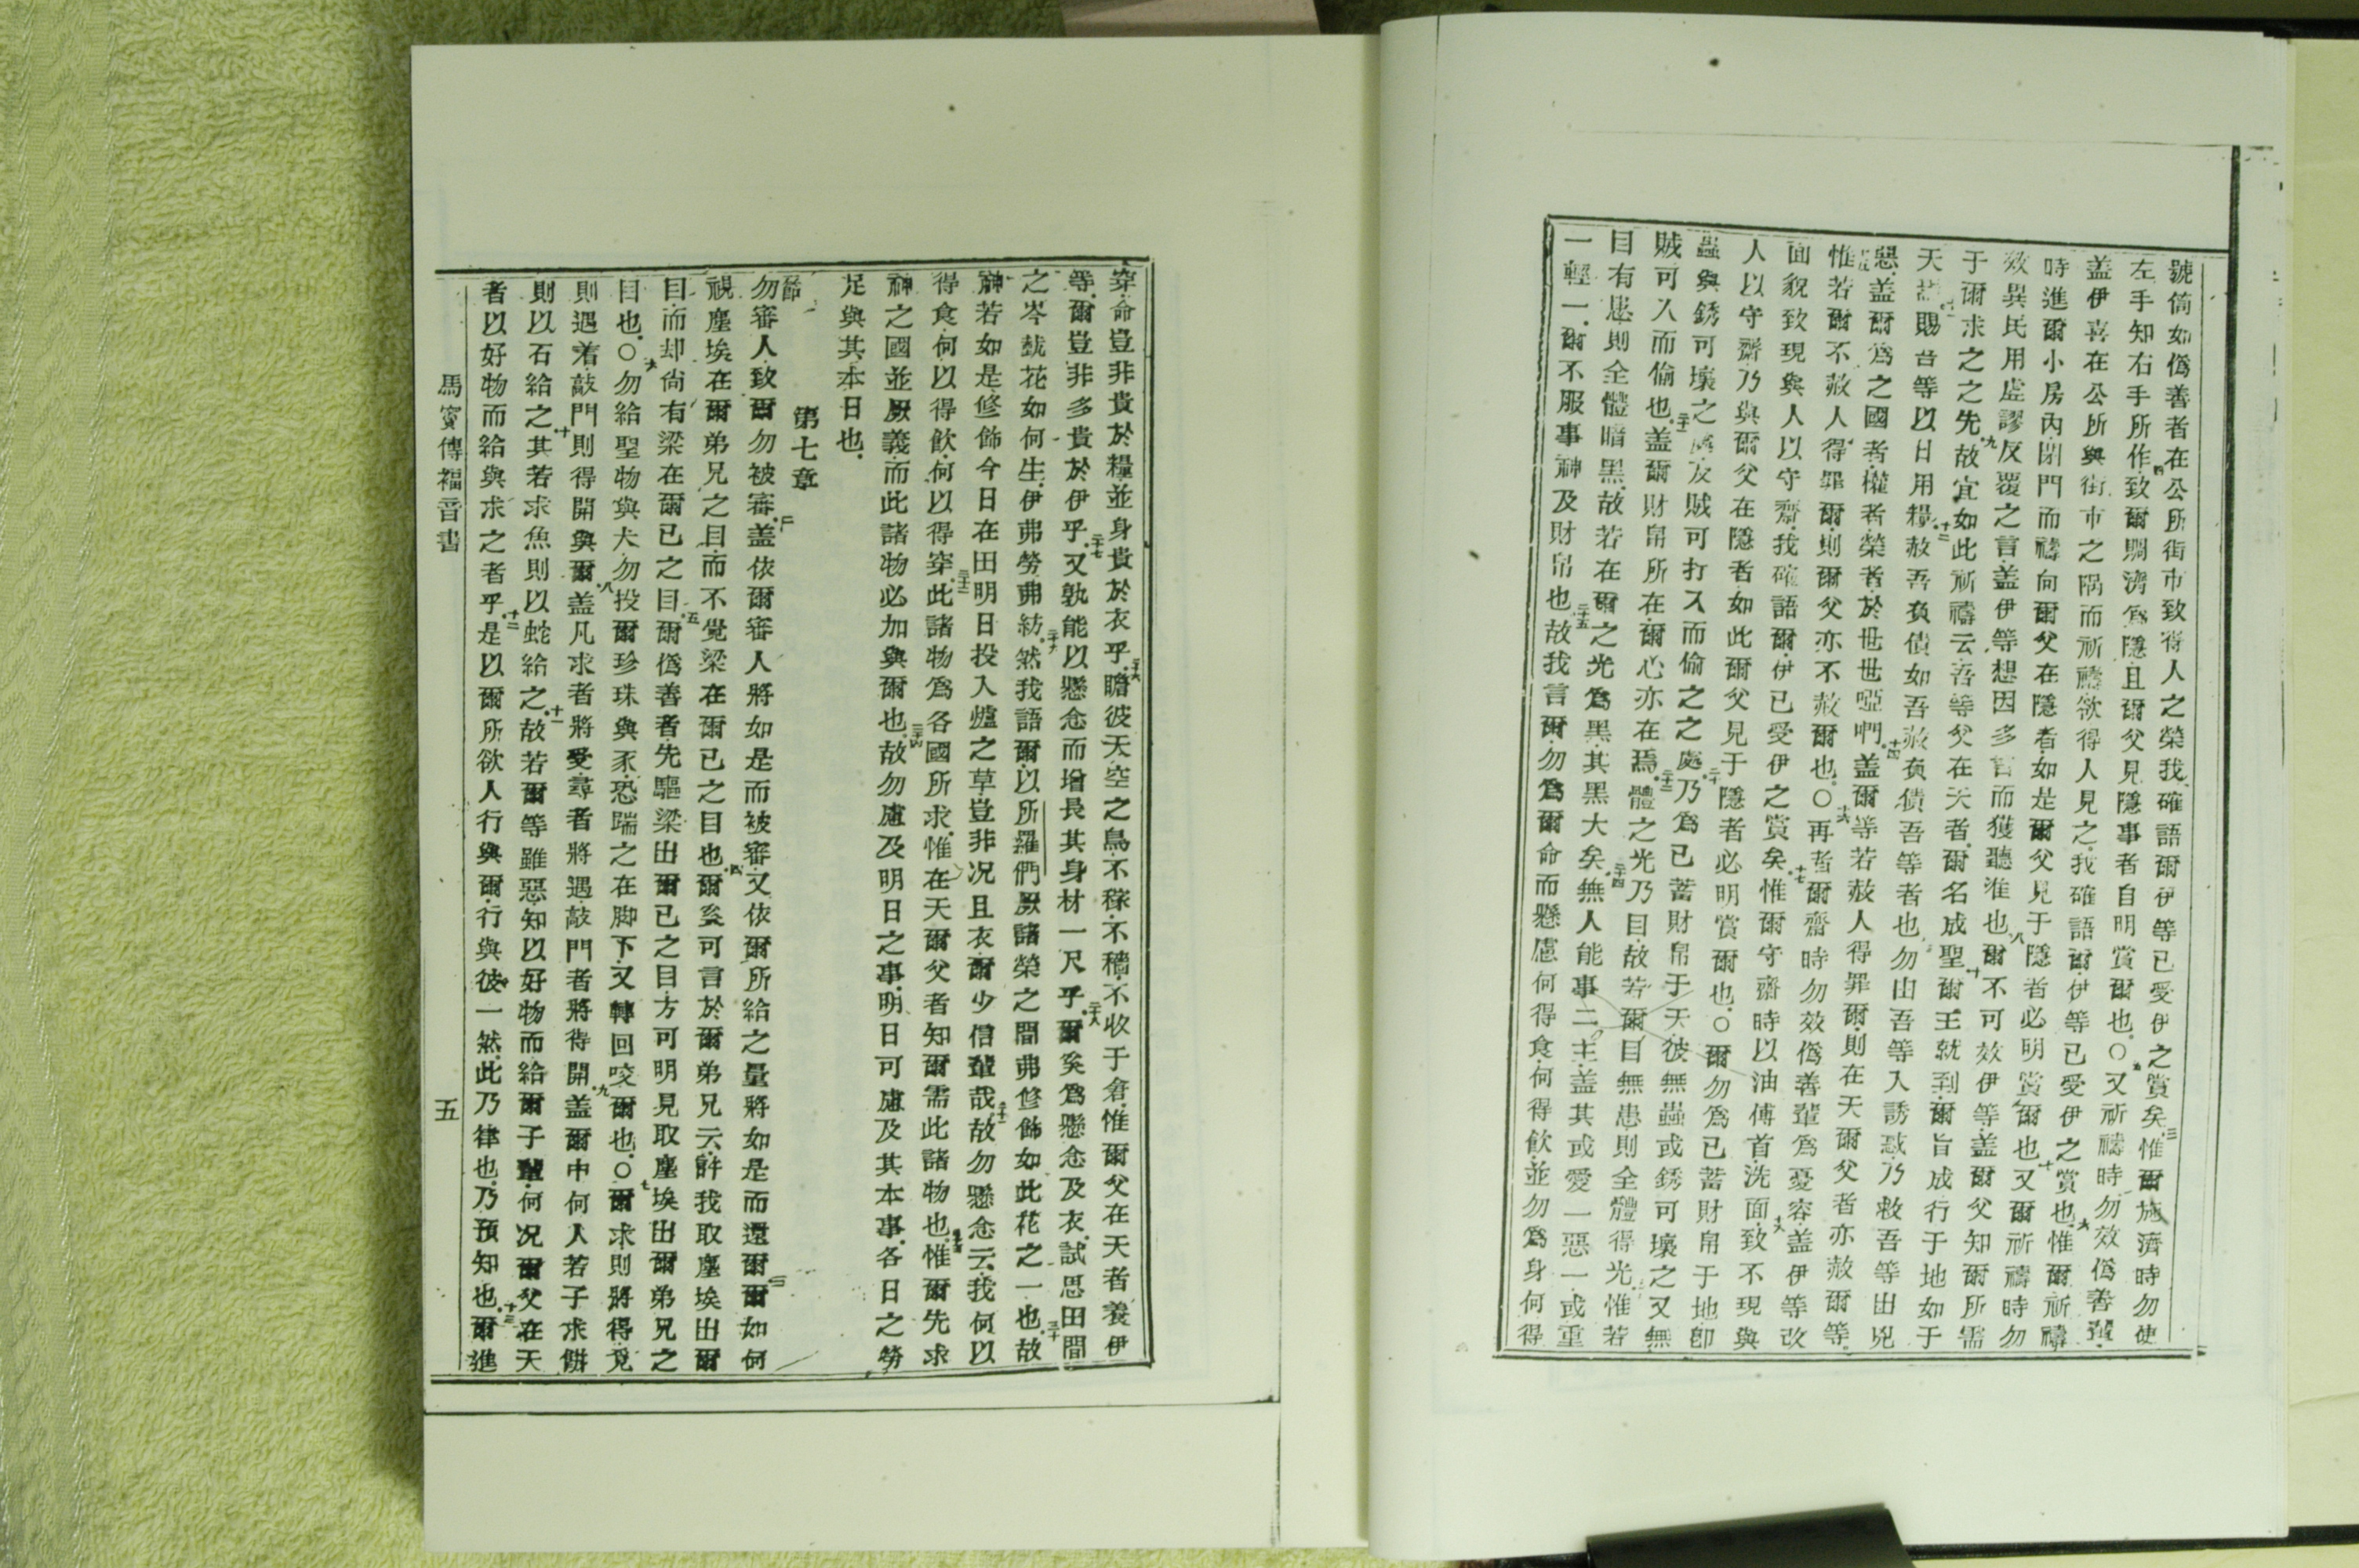 號筒如僞善者在公所街市致得人之榮我確語爾伊等已受伊之賞矣三惟爾施濟時勿使
左手知右手所作四致爾賙濟爲隱且爾父見隱事者自明賞爾也○五又祈禱時勿效僞善輩
蓋伊喜在公所與街市之隅而祈禱欲得人見之我確語爾伊等已受伊之賞也六惟爾祈禱
時進爾小房內閉門而禱向爾父在隱者如是爾父見于隱者必明賞爾也七又爾祈禱時勿
效異民用虛謬反覆之言蓋伊等想因多言而獲聽准也八爾不可效伊等蓋爾父知爾所需
于爾求之之先九故宜如此祈禱云吾等父在天者爾名成聖十爾王就到爾旨成行于地如于
天焉十一賜吾等以日用糧十二赦吾負債如吾赦負債吾等者也勿由吾等入誘惑乃救吾等出兇
惡蓋爾爲之國者權者榮者於世世啞𠵽十四蓋爾等若赦人得罪爾則在天爾父者亦赦爾等
惟若爾不赦人得罪爾則爾父亦不赦爾也○十六再者爾齋時勿效僞善輩爲憂容蓋伊等改
面貌致現與人以守齋我確語爾伊已受伊之賞矣十七惟爾守齋時以油傅首洗面十八致不現與
人以守齋乃與爾父在隱者如此爾父見于隱者必明賞爾也○爾勿爲已蓄財帛于地卽
蟲與銹可壞之處友賊可打入而偷之之處二十乃爲已蓄財帛于天彼無蟲或銹可壞之又無
賊可入而偷也二十一蓋爾財帛所在爾心亦在焉二十二體之光乃目故若爾目無患則全體得光惟若
目有患則全體暗黑故若在爾之光爲黑其黑大矣二十四無人能事二主蓋其或愛一惡一或重
一輕一爾不服事神及財帛也二十五故我言爾勿爲爾命而懸慮何得食何得飲並勿爲身何得
穿命豈非貴於糧並身貴於衣乎二十六瞻彼天空之鳥不稼不穡不收于倉惟爾父在天者養伊
等爾豈非多貴於伊乎二十七又孰能以懸念而增長其身材一尺乎二十八爾奚爲懸念及衣試思田間
之岑莪花如何生伊弗勞弗紡二十九然我語爾以所羅們厥諸榮之間弗修飾如此花之一也三十故
神若如是修飾今日在田明日投入爐之草豈非况且衣爾少信輩哉三十一故勿懸念云我何以
得食何以得飲何以得穿三十二此諸物爲各國所求惟在天爾父者知爾需此諸物也惟爾先求
神之國並厥義而此諸物必加與爾也三十四故勿慮及明日之事明日可慮及其本事各日之勞
足與其本日也
第七章
勿審人致爾勿被審二蓋依爾審人將如是而被審又依爾所給之量將如是而還爾三爾如何
視塵埃在爾弟兄之目而不覺梁在爾已之目也四爾奚可言於爾弟兄云許我取塵埃出爾
目而却尙有梁在爾已之目五爾僞善者先驅梁出爾已之目方可明見取塵埃出爾弟兄之
目也○六勿給聖物與犬勿投爾珍珠與豕恐踹之在脚下又轉回咬爾也○七爾求則將得覓
則遇着敲門則得開與爾八蓋凡求者將受尋者將遇敲門者將得開九蓋爾中何人若子求餅
則以石給之十其若求魚則以蛇給之十一故若爾等雖惡知以好物而給爾子輩何况爾父在天
者以好物而給與求之者乎十二是以爾所欲人行與爾行與彼一然此乃律也乃預知也十三爾進
馬竇傳福音書
五